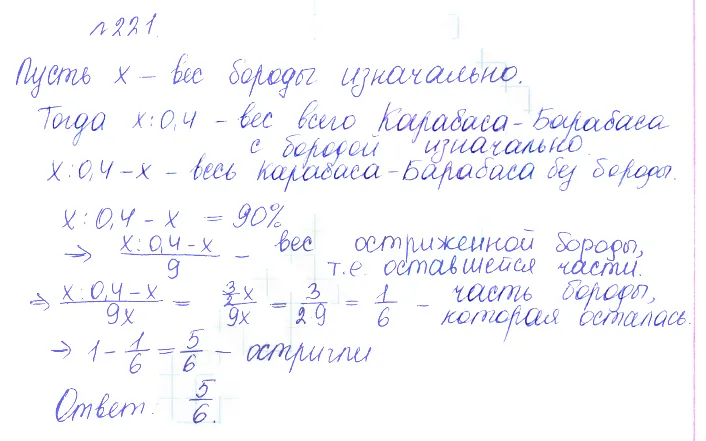 №221.
Пусть x – вес бороды изначально.
Тогда x:0,4 – вес всего Карабаса-Барабаса
с бородой изначально.
x:0,4-x – весь Карабаса-Барабаса без бороды.
x:0,4-x = 90%
⇒ (x:0,4-x)/9 – вес остриженной бороды,
т.е. оставшейся части.
⇒ (x:0,4-x)/9x = (3/2 x)/9x = 3/29 = 1/6 – часть бороды,
которая осталась.
⇒ 1-1/6=5/6 – остригли
Ответ: 5/6.